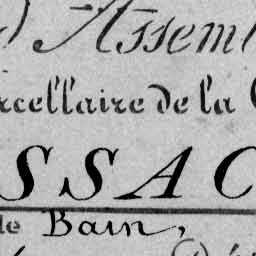 Assem
rcellaire de la
SSAC
de Bain,